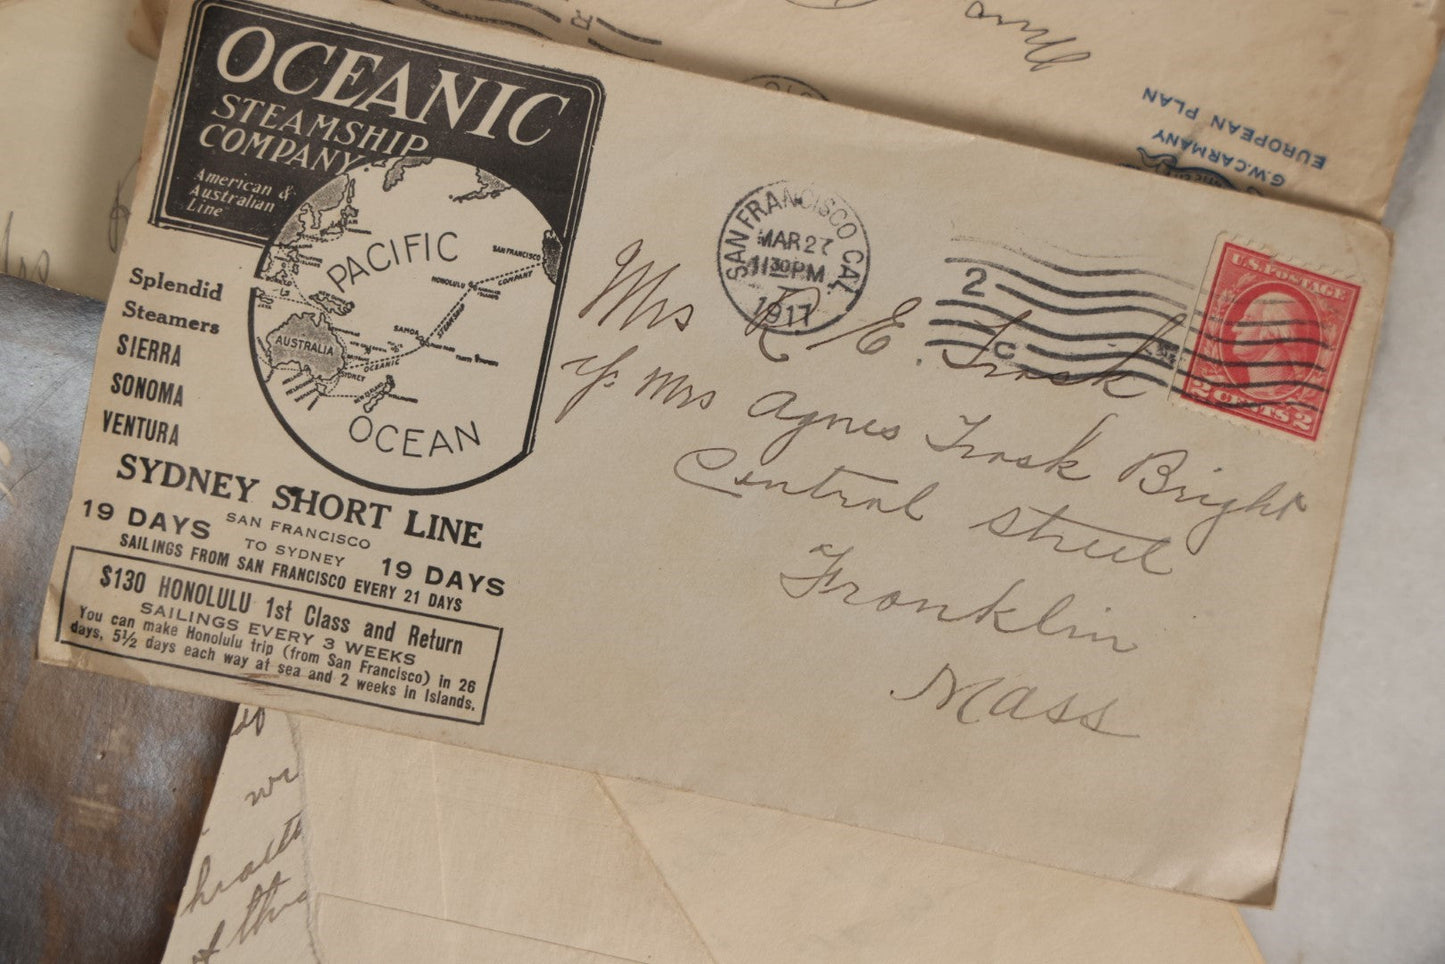 OCEANIC
STEAMSHIP
COMPANY
American &
Australian
Line"
PACIFIC
OCEAN
SAN FRANCISCO
HONOLULU
SAMOA
AUSTRALIA
SYDNEY
OCEANIC
STEAMSHIP
COMPANY
Splendid
Steamers
SIERRA
SONOMA
VENTURA
SYDNEY SHORT LINE
19 DAYS
SAN FRANCISCO
TO SYDNEY
19 DAYS
SAILINGS FROM SAN FRANCISCO EVERY 21 DAYS
$130 HONOLULU 1st Class and Return
SAILINGS EVERY 3 WEEKS
You can make Honolulu trip (from San Francisco) in 26
days, 5½ days each way at sea and 2 weeks in Islands.
SAN FRANCISCO CAL.
MAR 27
1130 PM
1917
2
C
U.S. POSTAGE
2 CENTS 2
Mrs R E. Trask
Mrs Agnes Trask Bright
Central street
Franklin
Mass
G.W. CARMANY
EUROPEAN PLAN
of this